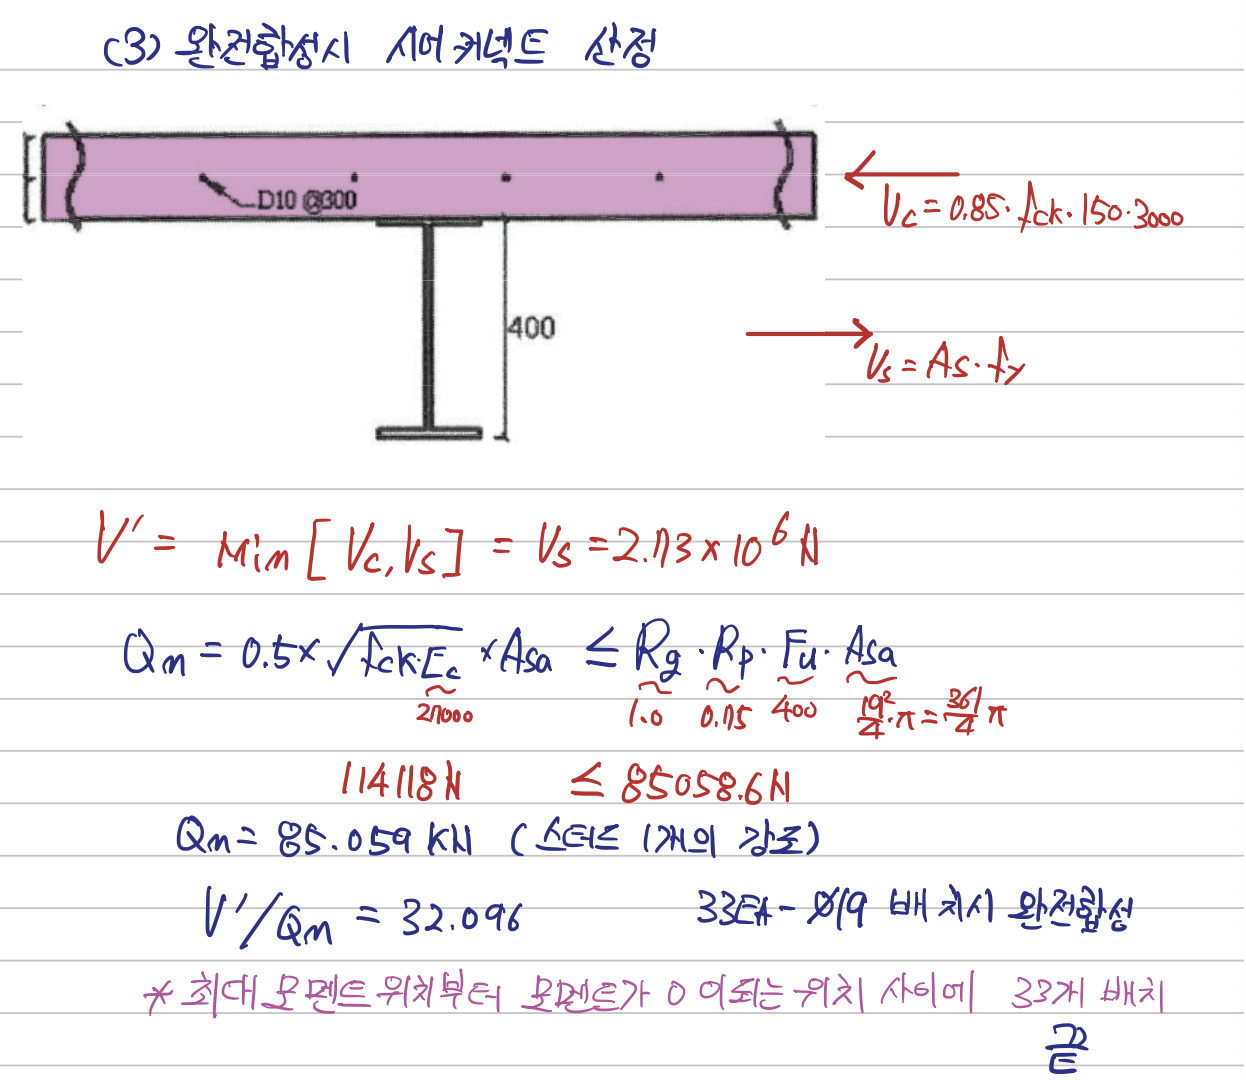 (3) 완전합성시 시어커넥트 산정
D10 @300
Vc = 0.85·fck·150·3000
400
Vs = As·fy
V' = Min [Vc, Vs] = Vs = 2.73 × 10⁶ N
Qn = 0.5 × √fck·Ec × Asa ≤ Rg · Rp · Fu · Asa
27000 1.0 0.75 400 19²/4·π = 361/4 π
114118N ≤ 85058.6N
Qn = 85.059 kN (스터드 1개의 강도)
V'/Qn = 32.096 33EA - Ø19 배치시 완전합성
* 최대 모멘트 위치부터 모멘트가 0 이되는 위치 사이에 33개 배치
끝